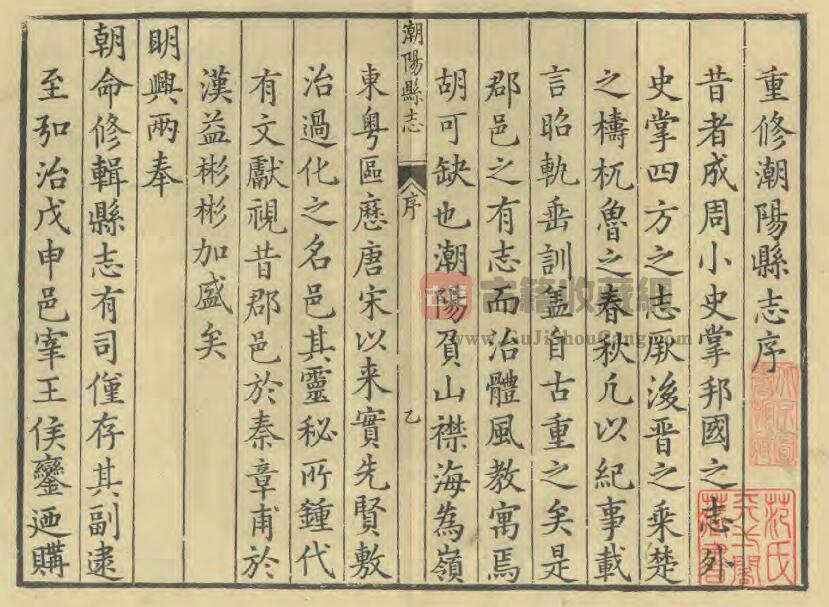 重修潮陽縣志序
昔者成周小史掌邦國之志外
史掌四方之志厥後晋之乘楚
之檮杌魯之春秋凢以紀事載
言昭軌垂訓盖自古重之矣是
郡邑之有志而治體風教寓焉
胡可缺也潮陽負山襟海為嶺
潮陽縣志
序
乙
東粵區歷唐宋以来實先賢敷
治過化之名邑其靈秘所鍾代
有文獻視昔郡邑於秦章甫於
漢益彬彬加盛矣
明興兩奉
朝命修輯縣志有司僅存其副逮
至弘治戊申邑宰王侯鑾迺購
范氏
天一閣
藏書
古籍收藏網
www.GuJiShouCang.com